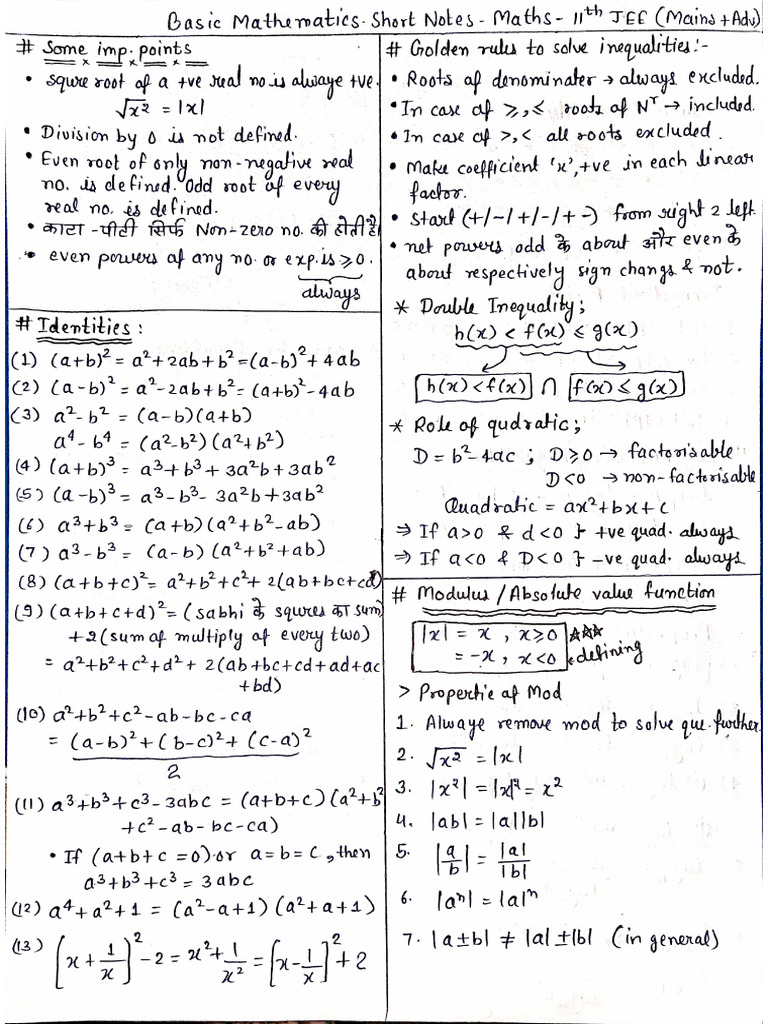 Basic Mathematics. Short Notes - Maths - 11th JEE (Mains + Adv)
# Some imp. points
• squre root of a +ve real no. is alwaye +ve.
√x² = |x|
• Division by 0 is not defined.
• Even root of only non-negative real
no. is defined. Odd root of every
real no. is defined.
• काटा -पीटी सिर्फ Non-zero no. की होती है
• even powers of any no. or exp. is ≥ 0.
always
# Identities :
(1) (a+b)² = a²+2ab+b² = (a-b)²+4ab
(2) (a-b)² = a²-2ab+b² = (a+b)²-4ab
(3) a²-b² = (a-b)(a+b)
a⁴-b⁴ = (a²-b²)(a²+b²)
(4) (a+b)³ = a³+b³+3a²b+3ab²
(5) (a-b)³ = a³-b³-3a²b+3ab²
(6) a³+b³ = (a+b)(a²+b²-ab)
(7) a³-b³ = (a-b)(a²+b²+ab)
(8) (a+b+c)² = a²+b²+c²+2(ab+bc+ca)
(9) (a+b+c+d)² = (sabhi के squres का sum)
+2(sum of multiply of every two)
= a²+b²+c²+d²+2(ab+bc+cd+ad+ac
+bd)
(10) a²+b²+c²-ab-bc-ca
= (a-b)²+(b-c)²+(c-a)²
2
(11) a³+b³+c³-3abc = (a+b+c)(a²+b²
+c²-ab-bc-ca)
• If (a+b+c = 0) or a=b=c, then
a³+b³+c³ = 3abc
(12) a⁴+a²+1 = (a²-a+1)(a²+a+1)
(13) [x+1/x]²-2 = x²+1/x² = [x-1/x]²+2
# Golden rules to solve inequalities:-
• Roots of denominater → always excluded.
• In case of ≥, ≤ roots of Nʳ → included.
• In case of >, < all roots excluded.
• Make coefficient 'x', +ve in each linear
factor.
• start (+/-/+/-/+ -) from right 2 left.
• net powers odd के about और even के
about respectively sign changs & not.
* Double Inequality;
h(x) < f(x) ≤ g(x)
h(x) < f(x) ∩ f(x) ≤ g(x)
* Role of qudratic;
D = b²-4ac ; D ≥ 0 → factorisable
D < 0 → non-factorisable
Quadratic = ax²+bx+c
⇒ If a>0 & d<0 } +ve quad. always
⇒ If a<0 & D<0 } -ve quad. always
# Modulus / Absolute value function
|x| = x , x ≥ 0 ☆☆☆
= -x , x < 0 defining
> Propertie of Mod
1. Alwaye remove mod to solve que. further.
2. √x² = |x|
3. |x²| = |x|² = x²
4. |ab| = |a||b|
5. |a/b| = |a|/|b|
6. |aⁿ| = |a|ⁿ
7. |a±b| ≠ |a|±|b| (in general)